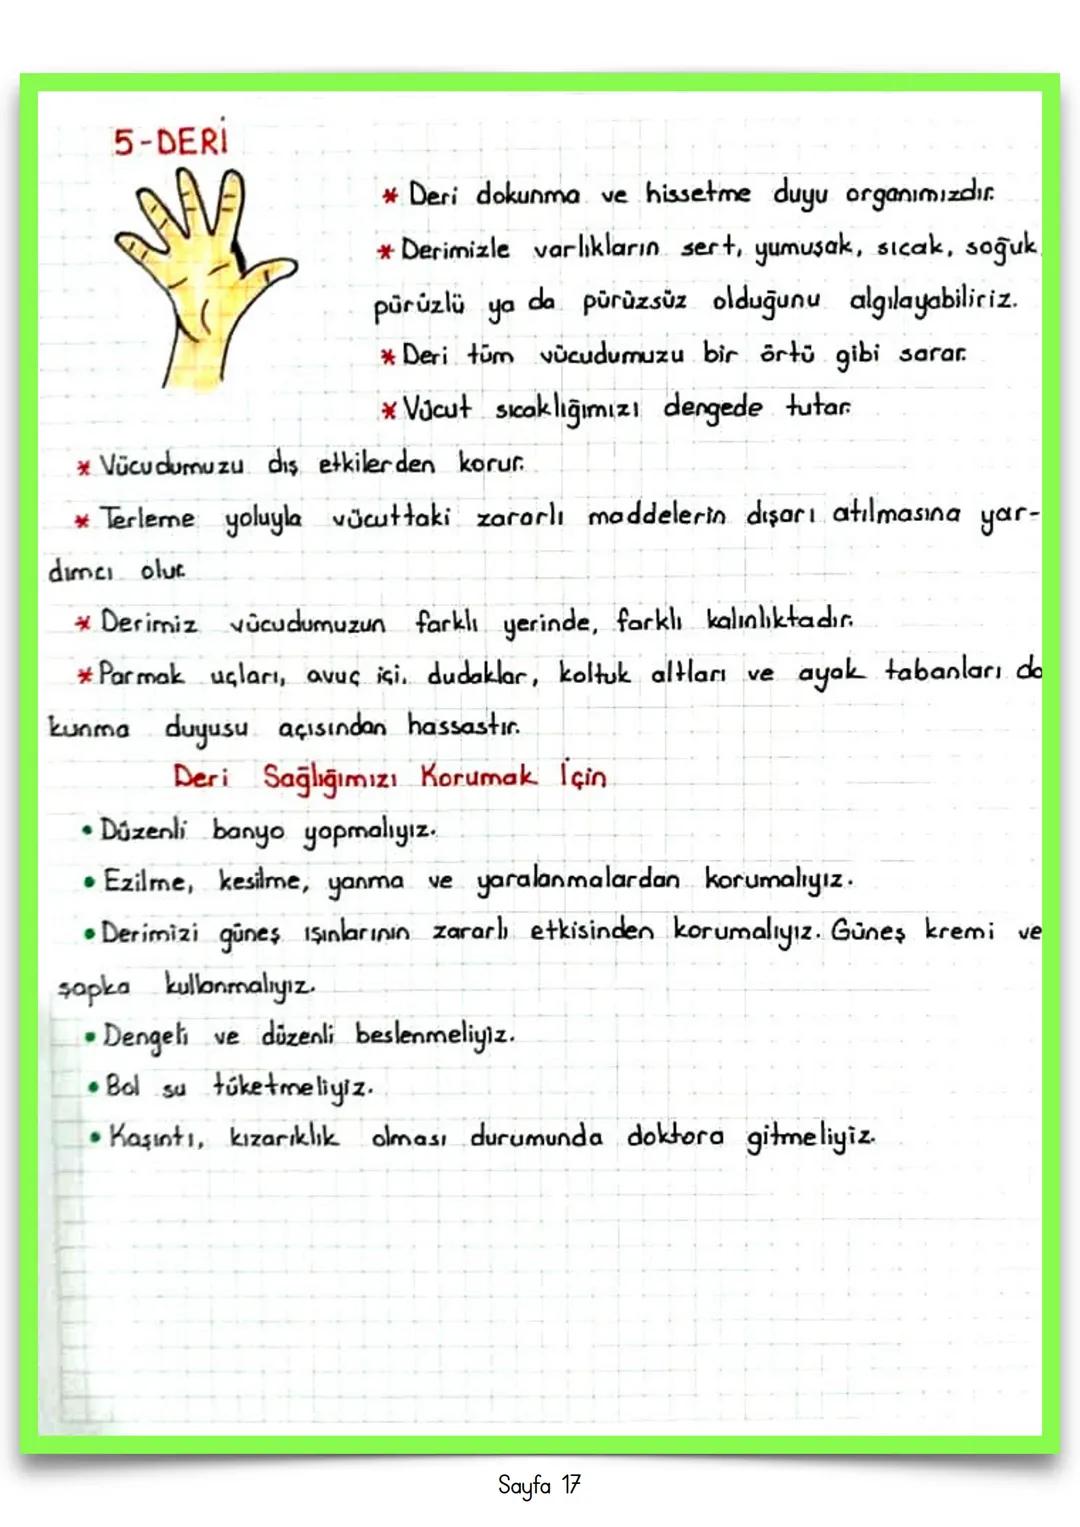 5-DERİ
* Deri dokunma ve hissetme duyu organımızdır.
* Derimizle varlıkların sert, yumuşak, sıcak, soğuk,
pürüzlü ya da pürüzsüz olduğunu algılayabiliriz.
* Deri tüm vücudumuzu bir örtü gibi sarar.
* Vücut sıcaklığımızı dengede tutar.
* Vücudumuzu dış etkilerden korur.
* Terleme yoluyla vücuttaki zararlı maddelerin dışarı atılmasına yar-
dımcı olur.
* Derimiz vücudumuzun farklı yerinde, farklı kalınlıktadır.
* Parmak uçları, avuç içi, dudaklar, koltuk altları ve ayak tabanları do
kunma duyusu açısından hassastır.
Deri Sağlığımızı Korumak İçin
• Düzenli banyo yapmalıyız.
• Ezilme, kesilme, yanma ve yaralanmalardan korumalıyız.
• Derimizi güneş ışınlarının zararlı etkisinden korumalıyız. Güneş kremi ve
şapka kullanmalıyız.
• Dengeli ve düzenli beslenmeliyiz.
• Bol su tüketmeliyiz.
• Kaşıntı, kızarıklık olması durumunda doktora gitmeliyiz.
Sayfa 17